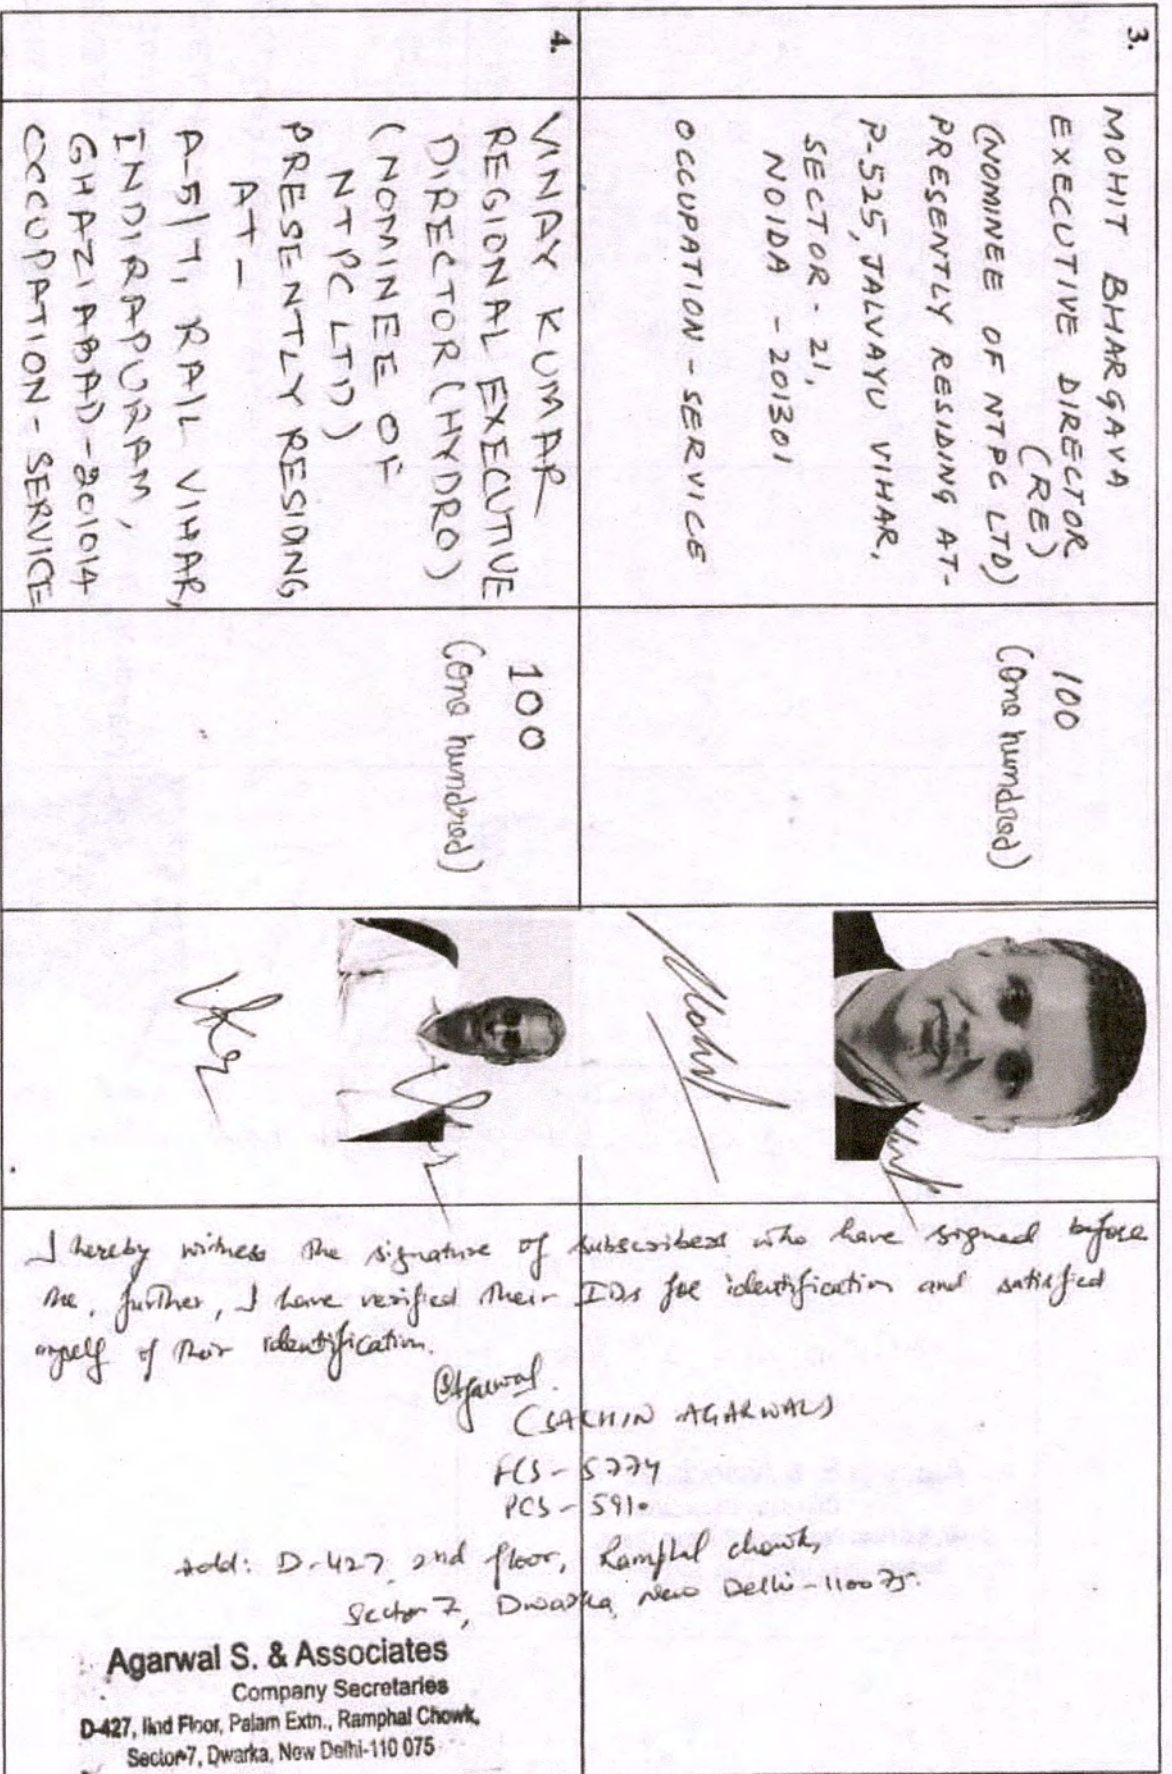 3.
MOHIT BHARGAVA
EXECUTIVE DIRECTOR
(RE)
(NOMINEE OF NTPC LTD)
PRESENTLY RESIDING AT-
P-525, JALVAYU VIHAR,
SECTOR - 21,
NOIDA - 201301
OCCUPATION - SERVICE
100
(One hundred)
Mohit
4.
VINAY KUMAR
REGIONAL EXECUTIVE
DIRECTOR (HYDRO)
(NOMINEE OF
NTPC LTD)
PRESENTLY RESIDING
AT -
A-5/7, RAIL VIHAR,
INDIRAPURAM,
GHAZIABAD - 201014
OCCUPATION - SERVICE
100
(One hundred)
I hereby witness the signature of subscribers who have signed before
me, further, I have verified their IDs for identification and satisfied
myself of their identification.
SAgarwal.
(SACHIN AGARWAL)
FCS - 5774
PCS - 5910
Add: D-427, 2nd floor, Ramphal chowk,
Sector 7, Dwarka, New Delhi - 110075.
Agarwal S. & Associates
Company Secretaries
D-427, IInd Floor, Palam Extn., Ramphal Chowk,
Sector-7, Dwarka, New Delhi-110 075